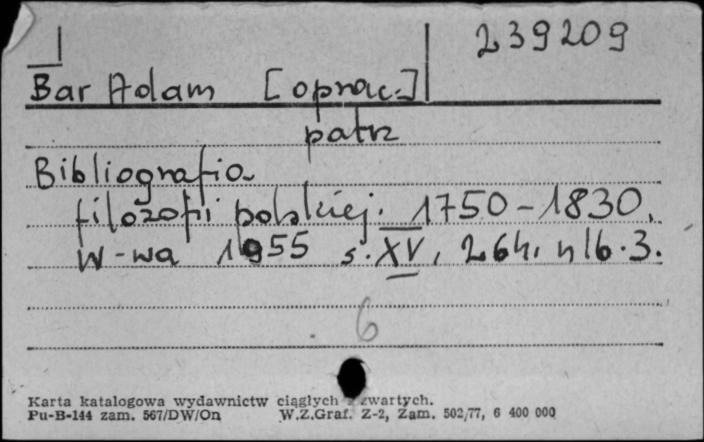 239209
Bar Adam [oprac.]
patrz
Bibliografia
filozofii polskiej. 1750-1830.
W-wa 1955 s. XV, 264, nlb. 3.
6
Karta katalogowa wydawnictw ciągłych i zwartych.
Pu-B-144 zam. 567/DW/On W.Z.Graf. Z-2, Zam. 502/77, 6 400 000